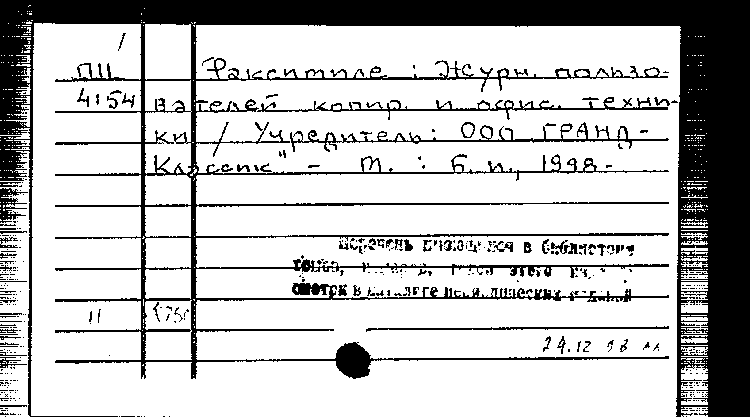 ПЦ
4154
Факсимиле : Журн. пользо-
вателей копир. и офис. техни-
ки / Учредитель: ООО "ГРАНД-
Классик" - М. : Б.и., 1998-
Перечень имеющихся в библиотеке
томов, номеров, этого
смотри в каталоге периодических изданий
24.12 98